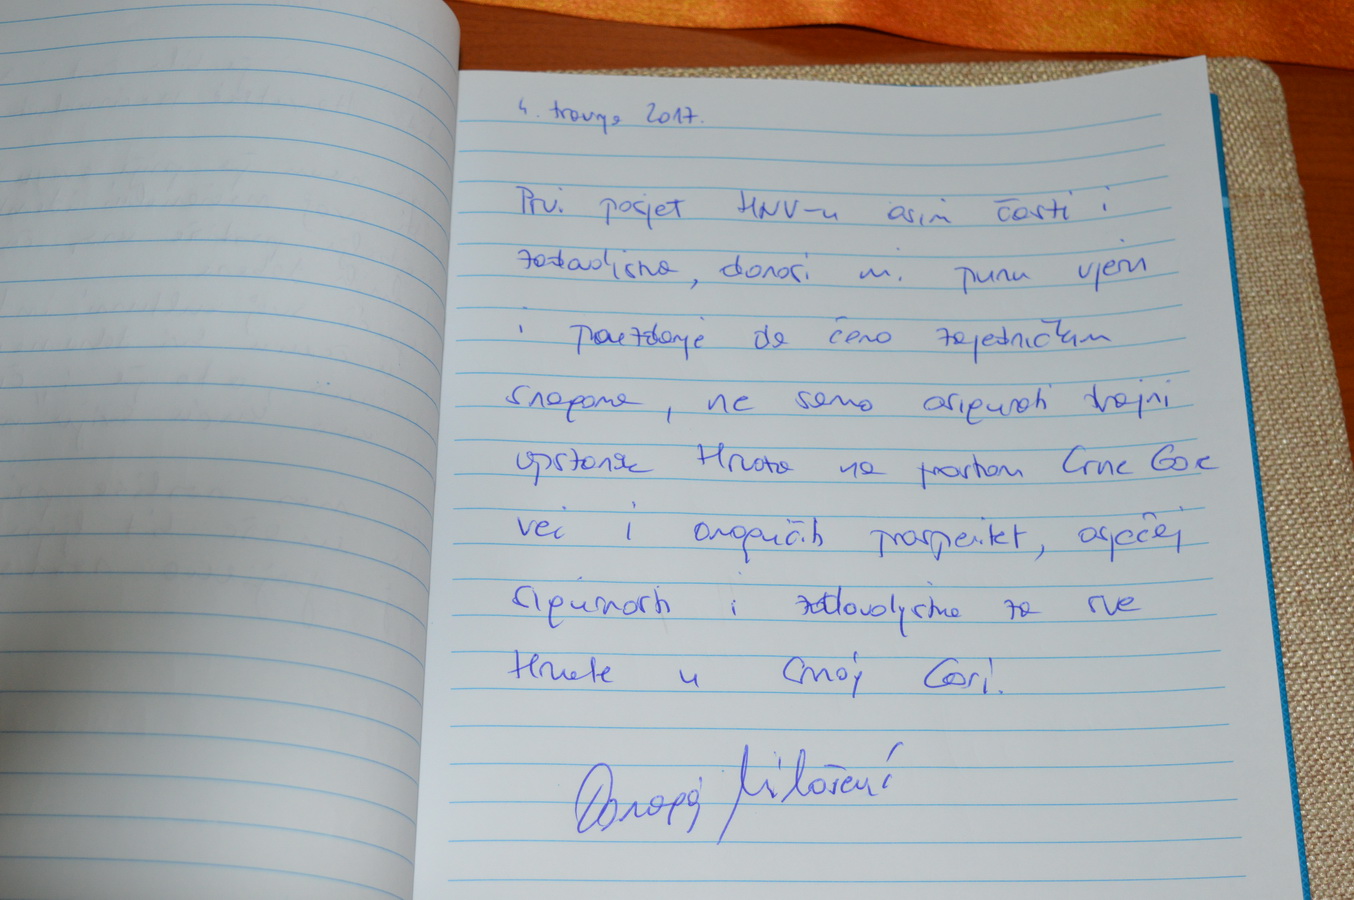 4. travnja 2017.
Prvi posjet HNV-u osim časti i
zadovoljstva, donosi mi punu vjeru
i pouzdanje da ćemo zajedničkim
snagama, ne samo osigurati trajni
opstanak Hrvata na prostoru Crne Gore
već i omogućiti prosperitet, osjećaj
sigurnosti i zadovoljstva za sve
Hrvate u Crnoj Gori.
Domagoj Milošević